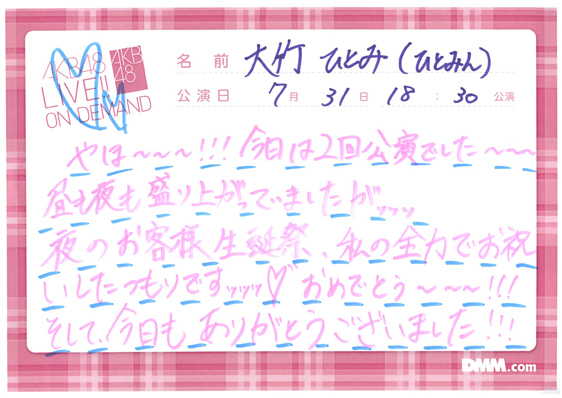 AKB48
LIVE!!
ON DEMAND
AKB
48
名前 大竹 ひとみ (ひとみん)
公演日 7月 31日 18:30 公演
やほ～～～!!! 今日は2回公演でした～～～
昼も夜も盛り上がっていましたがッッッ
夜のお客様生誕祭、私の全力でお祝
いしたつもりですッッッ♡ おめでとう～～～!!!
そして、今日もありがとうございました!!!
DMM.com